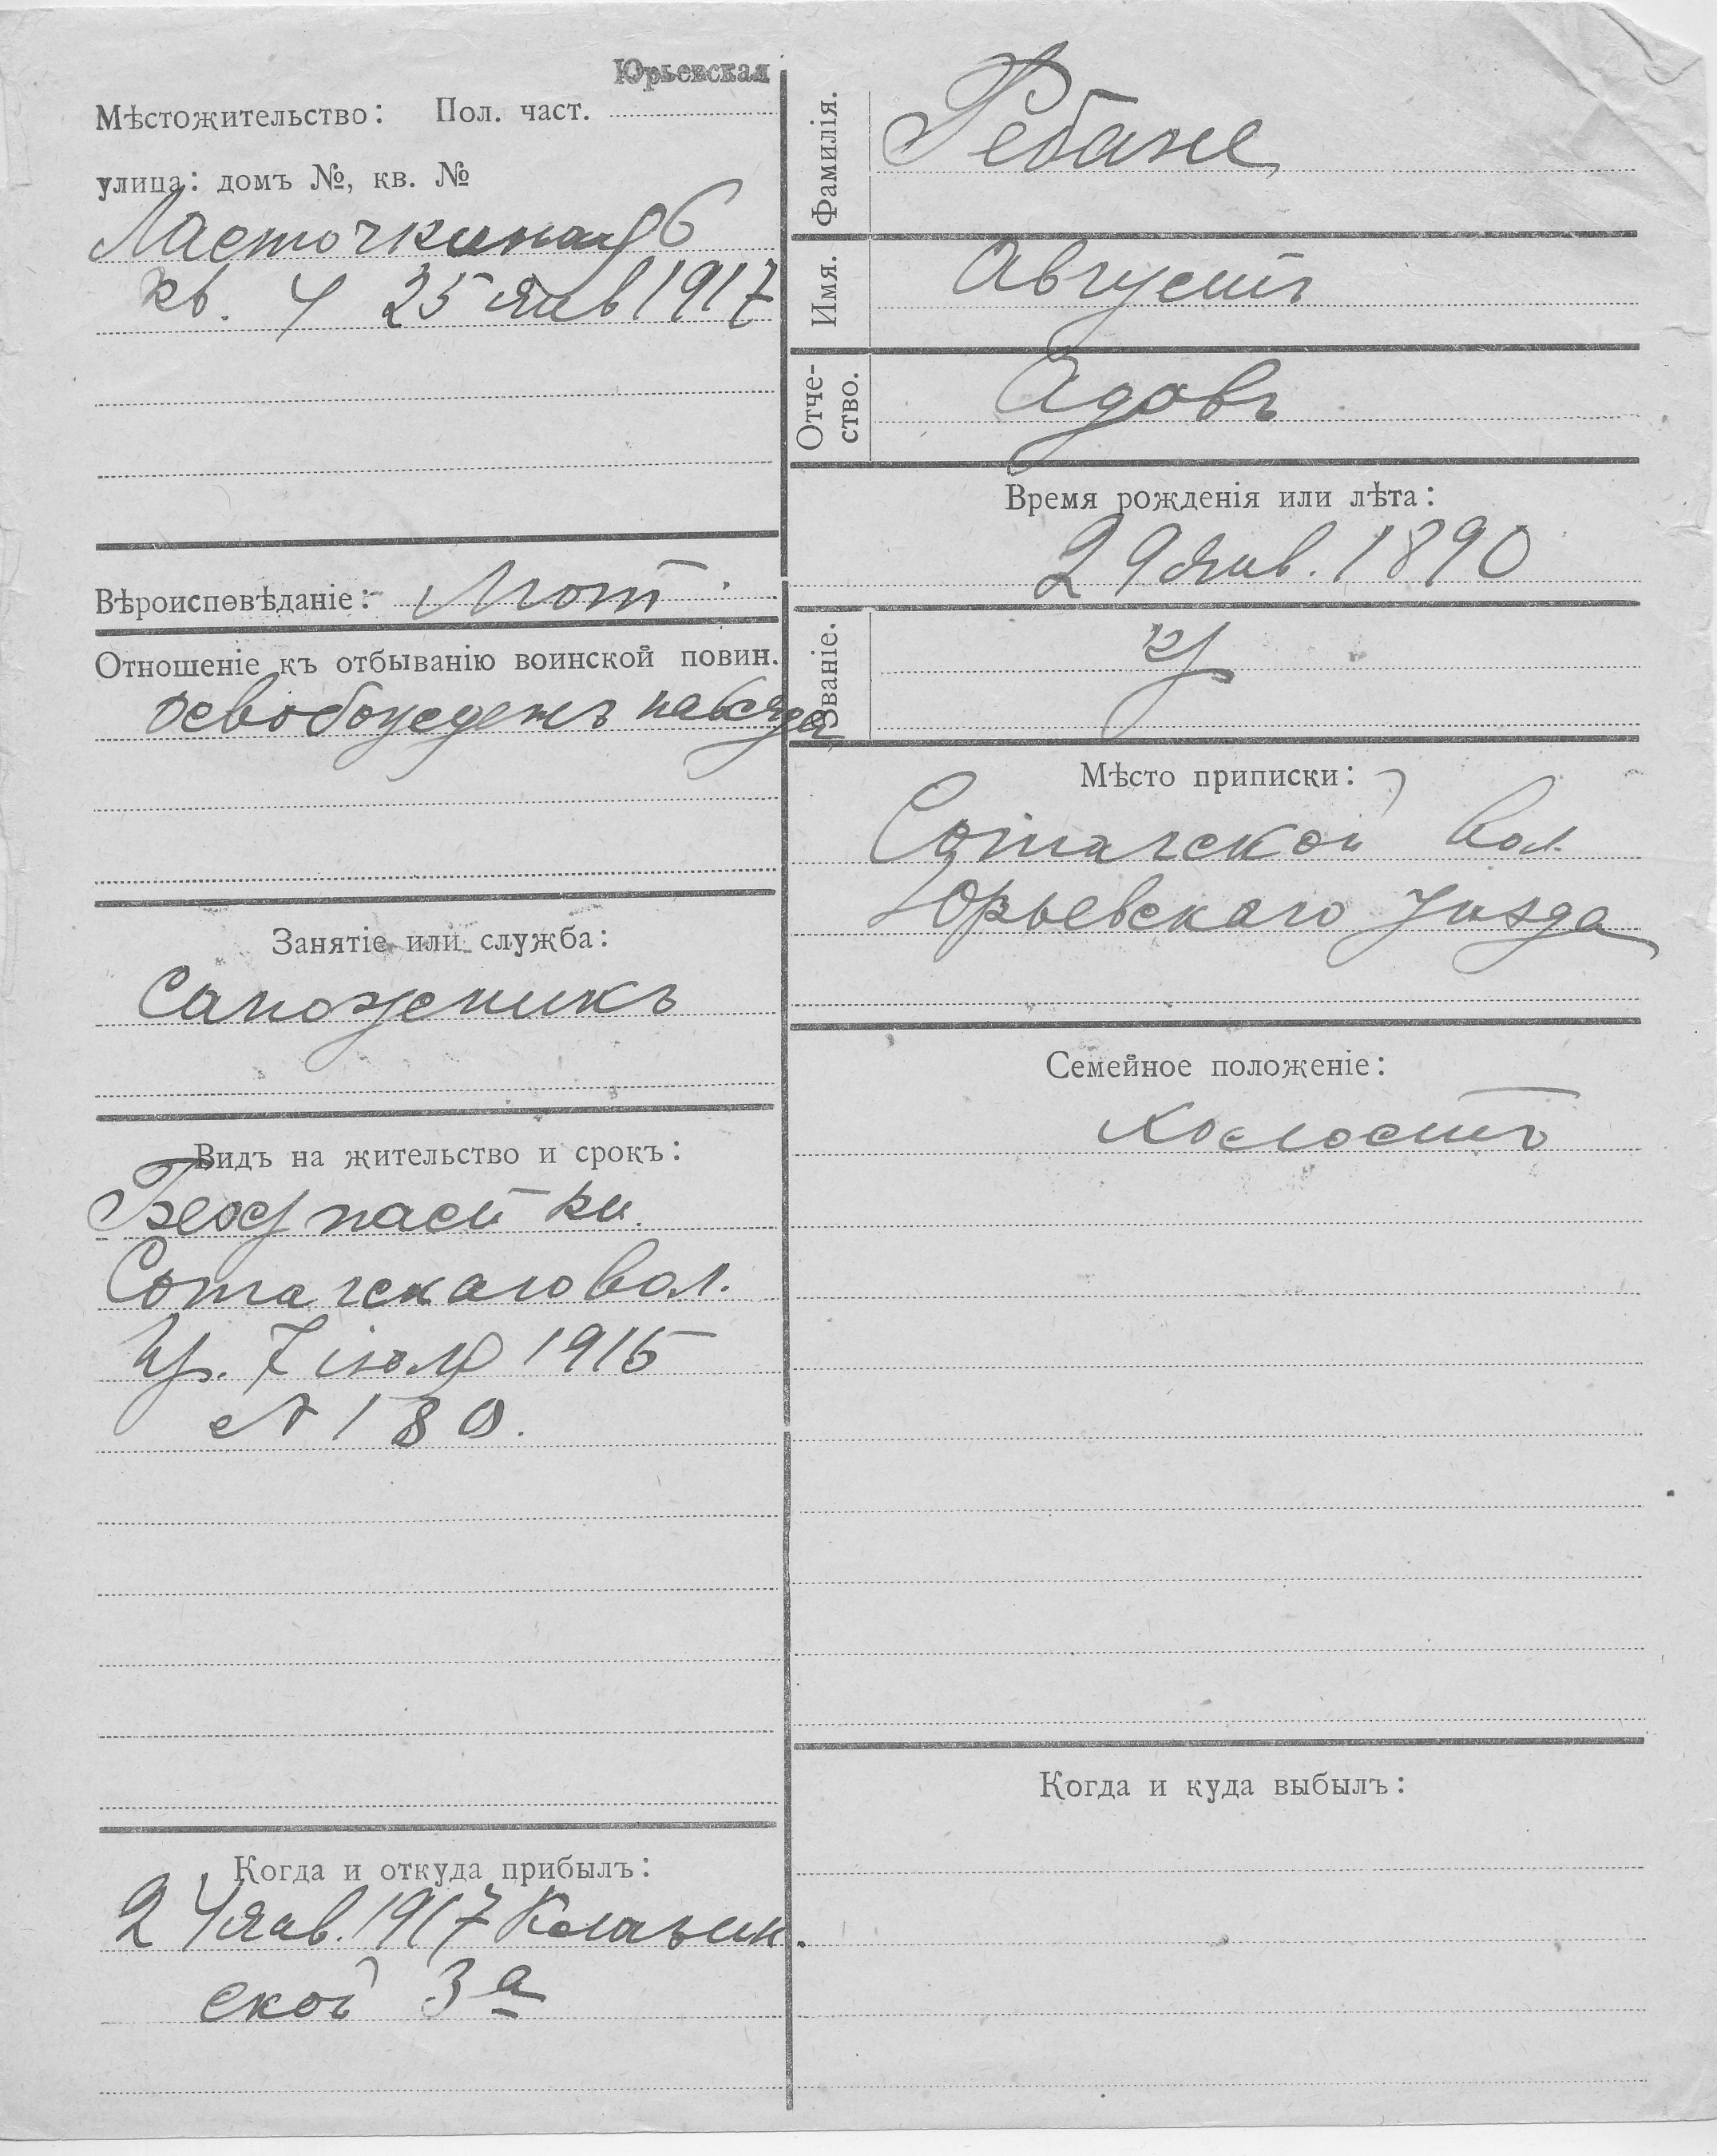 Юрьевская
Мѣстожительство: Пол. част.
улица: домъ №, кв. №
Ласточкиная 6
кв. 4 25 янв 1917
Вѣроисповѣданіе: Лют.
Отношеніе къ отбыванію воинской повин.
освобожденъ навсегда
Занятіе или служба:
Сапожникъ
Видъ на жительство и срокъ:
Безср пасп кн.
Сотагскаго вол.
пр. 7 іюля 1915
№ 180.
Когда и откуда прибылъ:
24 янв. 1917
ской 3а
Фамилія.
Ребане
Имя.
Августъ
Отче-
ство.
Адовъ
Время рожденія или лѣта:
29 янв. 1890
Званіе.
кр
Мѣсто приписки:
Сотагской вол.
Юрьевскаго уѣзда
Семейное положеніе:
холостъ
Когда и куда выбылъ: